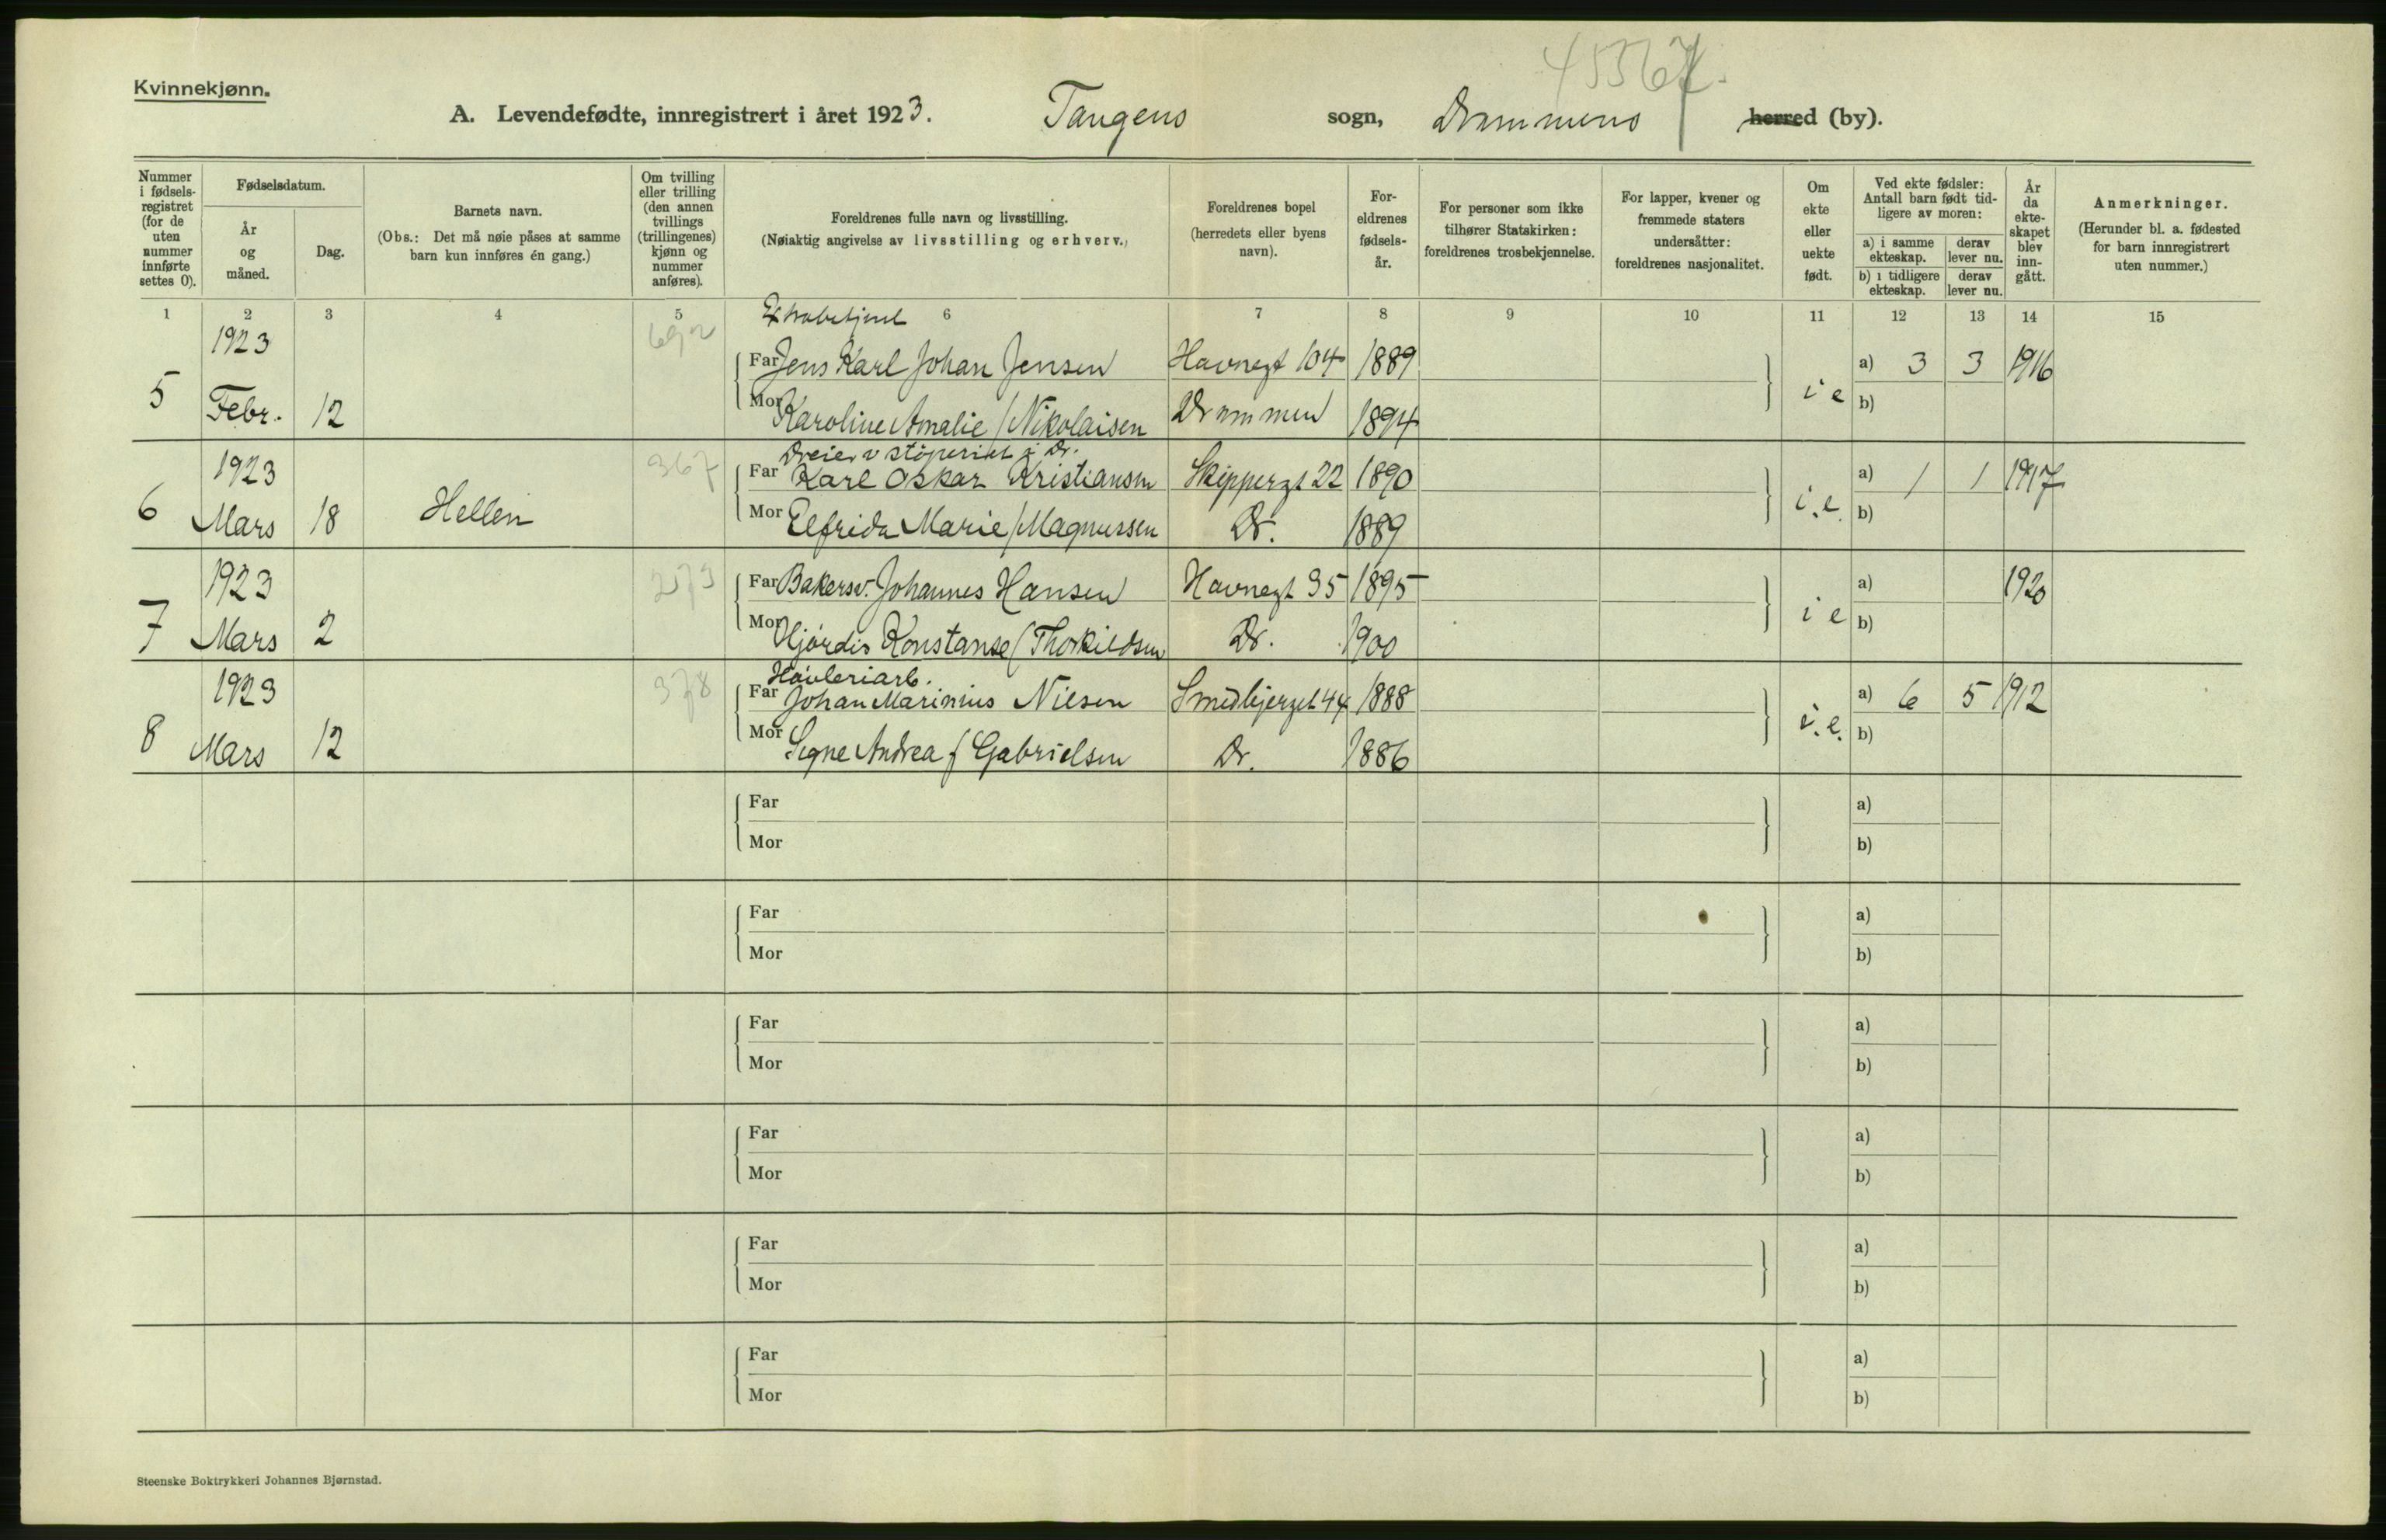 Kvinnekjønn.
A. Levendefødte, innregistrert i året 1923. Tangens sogn, Drammens herred (by).
Nummer i fødsels-registret (for de uten nummer innførte settes 0).
Fødselsdatum.
År og måned.
Dag.
Barnets navn.
(Obs.: Det må nøie påses at samme barn kun innføres én gang.)
Om tvilling eller trilling (den annen tvillings (trillingenes) kjønn og nummer anføres).
Foreldrenes fulle navn og livsstilling.
(Nøiaktig angivelse av livsstilling og erhverv.)
Foreldrenes bopel (herredets eller byens navn).
For-eldrenes fødsels-år.
For personer som ikke tilhører Statskirken: foreldrenes trosbekjennelse.
For lapper, kvener og fremmede staters undersåtter: foreldrenes nasjonalitet.
Om ekte eller uekte født.
Ved ekte fødsler: Antall barn født tid-ligere av moren:
a) i samme ekteskap.
derav lever nu.
b) i tidligere ekteskap.
derav lever nu.
År da ekte-skapet blev inn-gått.
Anmerkninger.
(Herunder bl. a. fødested for barn innregistrert uten nummer.)
1 2 3 4 5 6 7 8 9 10 11 12 13 14 15
1923
Far Jens Karl Johan Jensen Havnegt 104 1889 a) 3 3 1916
5 Febr. 12 i e b)
Mor Karoline Amalie / Nikolaisen Drammen 1894
1923 367 Dreier v støperiet i Dr.
Far Karl Oskar Kristiansen Skippergt 22 1890 a) 1 1 1917
6 Mars 18 Hellen i.e. b)
Mor Elfrida Marie / Magnussen Dr. 1889
1923 Far Bakersv. Johannes Hansen Havnegt 35 1895 a) 1920
7 Mars 2 i e b)
Mor Hjørdis Konstanse / Thorkildsen Dr. 1900
1923 378 Høvleriarb.
Far Johan Marinius Nilsen Smedbjerget 44 1888 a) 6 5 1912
8 Mars 12 i.e. b)
Mor Signe Andrea f Gabrielsen Dr. 1886
Far a)
Mor b)
Far a)
Mor b)
Far a)
Mor b)
Far a)
Mor b)
Far a)
Mor b)
Far a)
Mor b)
Steenske Boktrykkeri Johannes Bjørnstad.